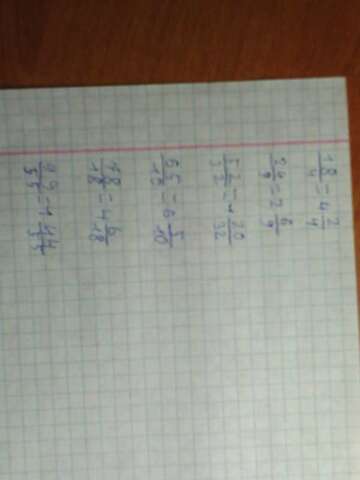 18/4 = 4 2/4
24/9 = 2 6/9
52/32 = 1 20/32
65/10 = 6 5/10
78/18 = 4 6/18
99/55 = 1 44/55